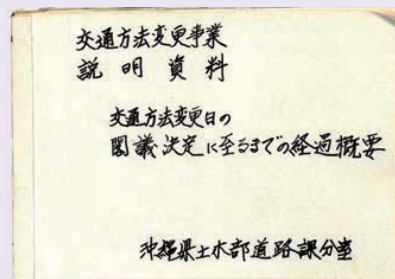 交通方法変更事業
説明資料
交通方法変更日の
閣議決定に至るまでの経過概要
沖縄県土木部道路課分室